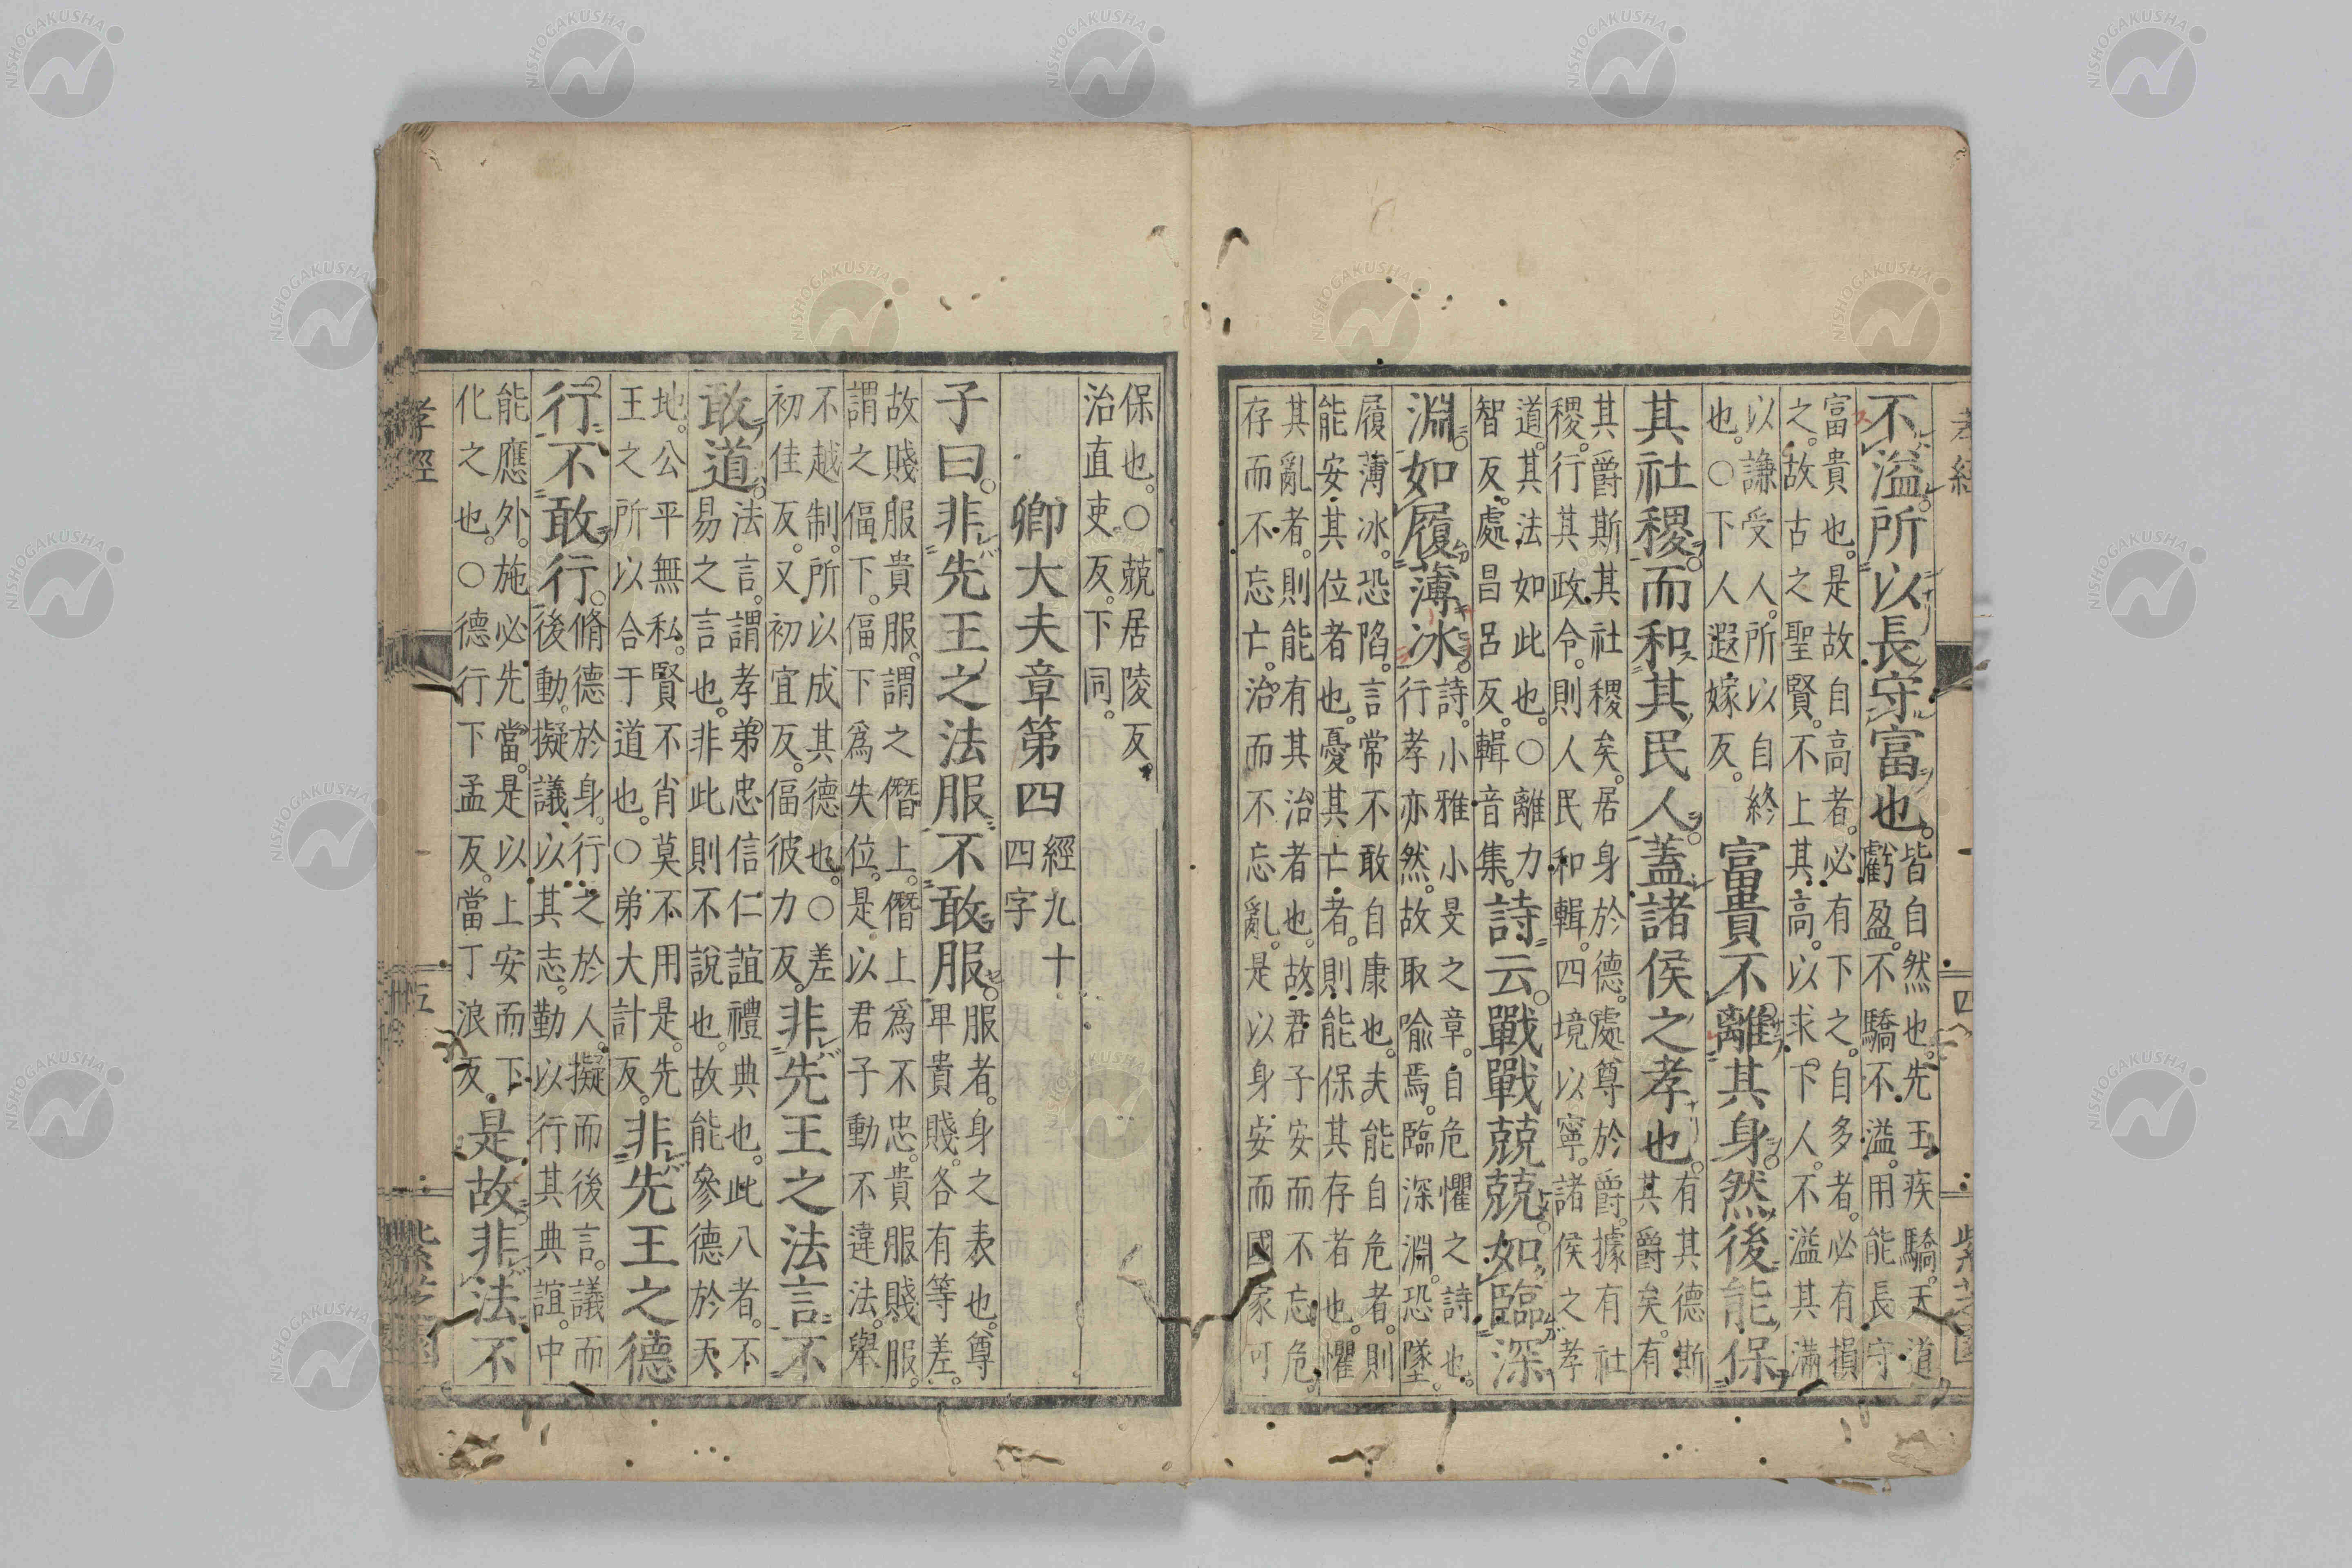 不溢。所以長守富也。
皆自然也。先王疾驕。天道
虧盈。不驕不溢。用能長守
富貴也。是故自高者。必有下之。自多者。必有損
之。故古之聖賢。不上其高。以求下人。不溢其滿
以謙受人。所以自終
也。○下人遐嫁反。
富貴不離其身。然後能保
其社稷。而和其民人。蓋諸侯之孝也。
有其德斯
其爵矣。有
其爵斯其社稷矣。居身於德。處尊於爵。據有社
稷。行其政令。則人民和輯。四境以寧。諸侯之孝
道。其法如此也。○離力
智反。處昌呂反。輯音集。
詩云。戰戰兢兢。如臨深
淵。如履薄冰。
詩。小雅小旻之章。自危懼之詩也。
行孝亦然。故取喻焉。臨深淵。恐墜。
履薄冰。恐陷。言常不敢自康也。夫能自危者。則
能安其位者也。憂其亡者。則能保其存者也。懼
其亂者。則能有其治者也。故君子安而不忘危。
存而不忘亡。治而不忘亂。是以身安而國家可
保也。○兢居陵反。
治直吏反。下同。
卿大夫章第四
經九十
四字
子曰。非先王之法服。不敢服。
服者。身之表也。尊
卑貴賤。各有等差。
故賤服貴服。謂之僭上。僭上爲不忠。貴服賤服。
謂之偪下。偪下爲失位。是以君子動不違法。舉
不越制。所以成其德也。○差
初佳反。又初宜反。偪彼力反。
非先王之法言。不
敢道。
法言。謂孝弟忠信仁誼禮典也。此八者。不
易之言也。非此則不說也。故能參德於天
地。公平無私。賢不肖莫不用是。先
王之所以合于道也。○弟大計反。
非先王之德
行。不敢行。
脩德於身。行之於人。擬而後言。議而
後動。擬議以其志。動以行其典誼。中
能應外。施必先當。是以上安而下
化之也。○德行下孟反。當丁浪反。
是故非法不
孝經
五
四